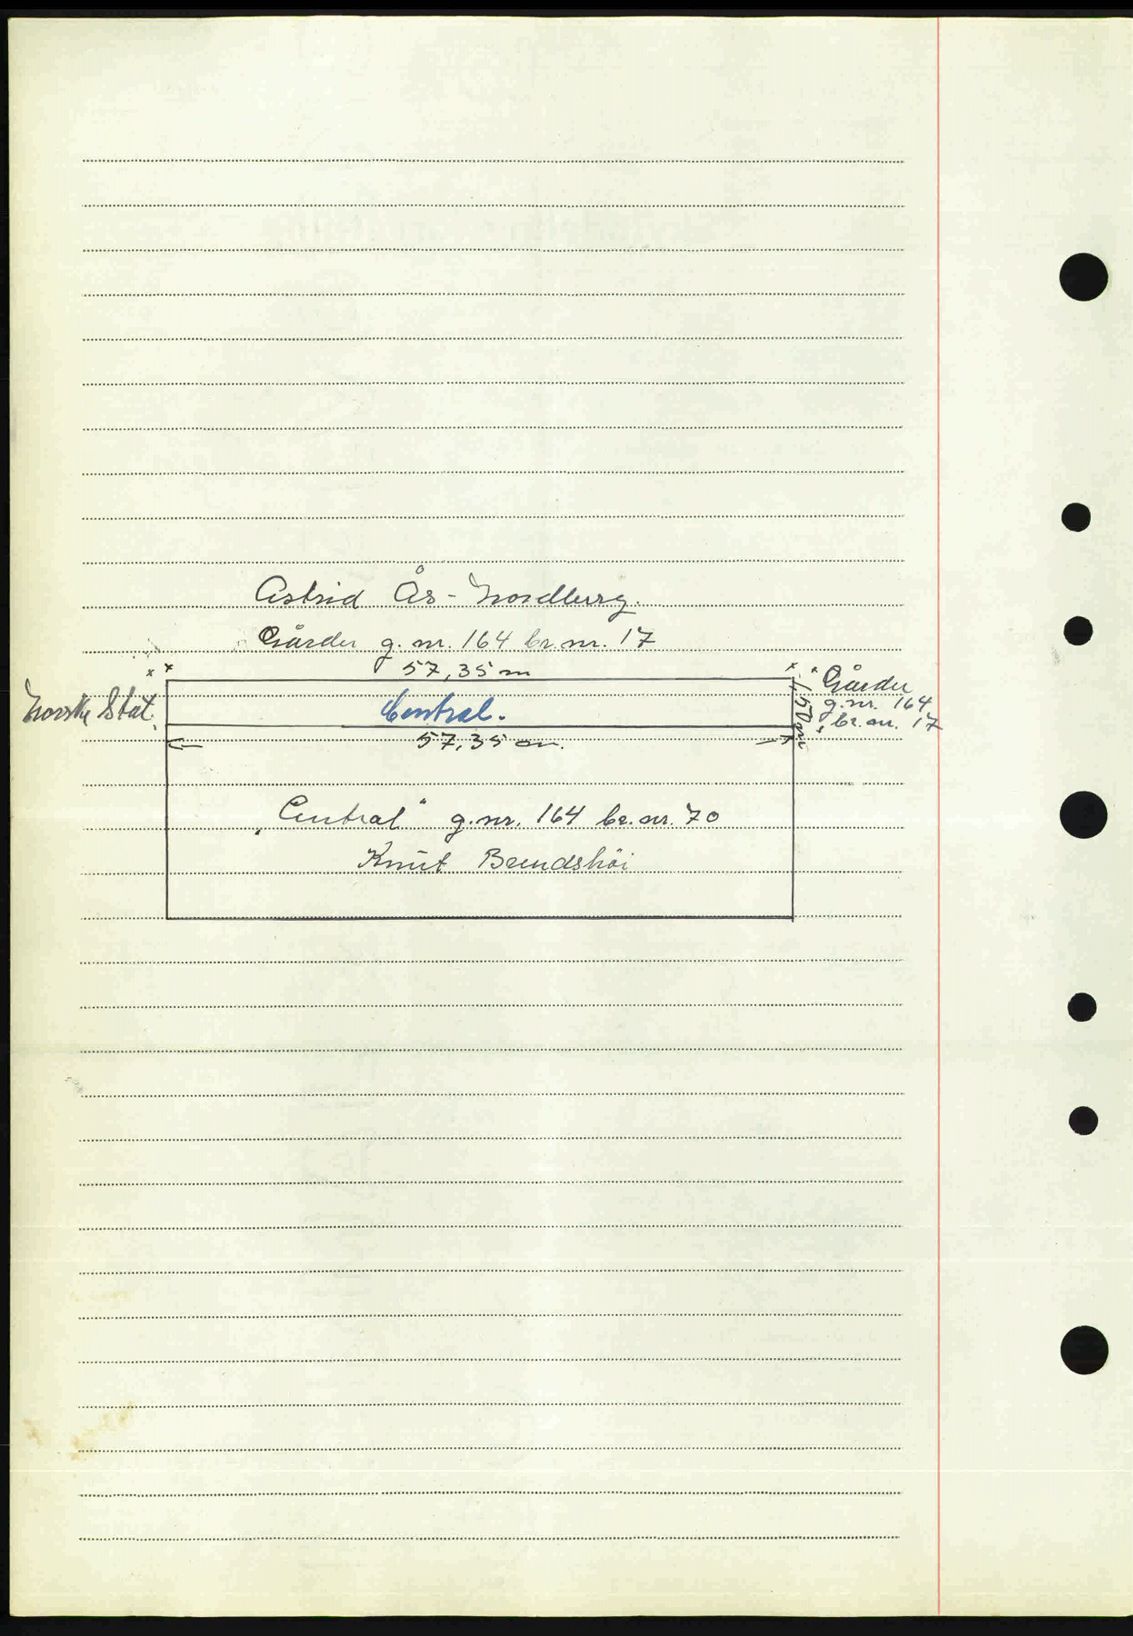 Astrid Ås - Nordberg.
Gårder g. nr. 164 br. nr. 17
57,35 m
Norske Stat.
Central.
1,50 m
Gårder
g. nr. 164
br. nr. 17
57,35 m.
„Central" g. nr. 164 br. nr. 70
Knut